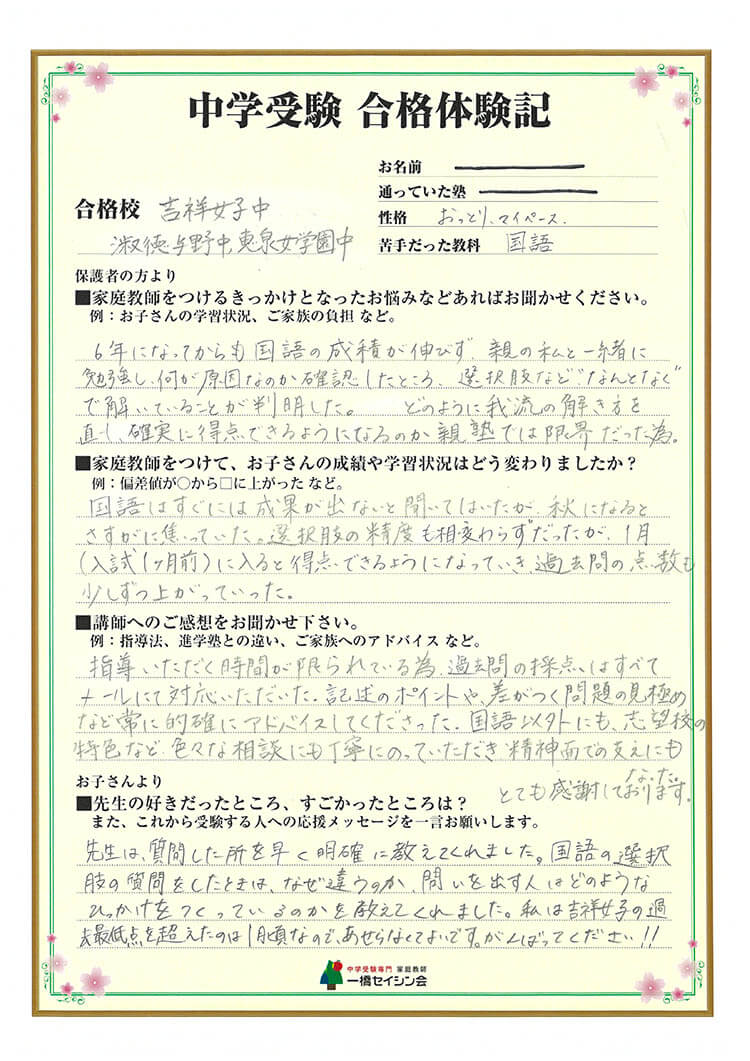 中学受験 合格体験記
お名前
通っていた塾
合格校 吉祥女子中
性格 おっとり、マイペース.
淑徳与野中、恵泉女学園中
苦手だった教科 国語
保護者の方より
■家庭教師をつけるきっかけとなったお悩みなどあればお聞かせください。
例：お子さんの学習状況、ご家族の負担 など。
6年になってからも国語の成積が伸びず、親の私と一緒に
勉強し、何が原因なのか確認したところ、選択肢など"なんとなく"
で解いていることが判明した。 どのように我流の解き方を
直し、確実に得点できるようになるのか親塾では限界だった為。
■家庭教師をつけて、お子さんの成績や学習状況はどう変わりましたか？
例：偏差値が○から□に上がった など。
国語はすぐには成果が出ないと聞いてはいたが、秋になると
さすがに焦っていた。選択肢の精度も相変わらずだったが、1月
(入試1ヶ月前)に入ると得点できるようになっていき、過去問の点数も
少しずつ上がっていった。
■講師へのご感想をお聞かせ下さい。
例：指導法、進学塾との違い、ご家族へのアドバイス など。
指導いただく時間が限られている為、過去問の採点はすべて
メールにて対応いただいた。記述のポイントや、差がつく問題の見極め
など常に的確にアドバイスしてくださった。国語以外にも、志望校の
特色など、色々な相談にも丁寧にのっていただき精神面での支えにも
なった。
とても感謝しております。
お子さんより
■先生の好きだったところ、すごかったところは？
また、これから受験する人への応援メッセージを一言お願いします。
先生は、質問した所を早く明確に教えてくれました。国語の選択
肢の質問をしたときは、なぜ違うのか、問いを出す人はどのような
ひっかけをつくっているのかを教えてくれました。私は吉祥女子の過
去最低点を超えたのは1月頃なので、あせらなくてよいです。がんばってください!!
中学受験専門 家庭教師
一橋セイシン会